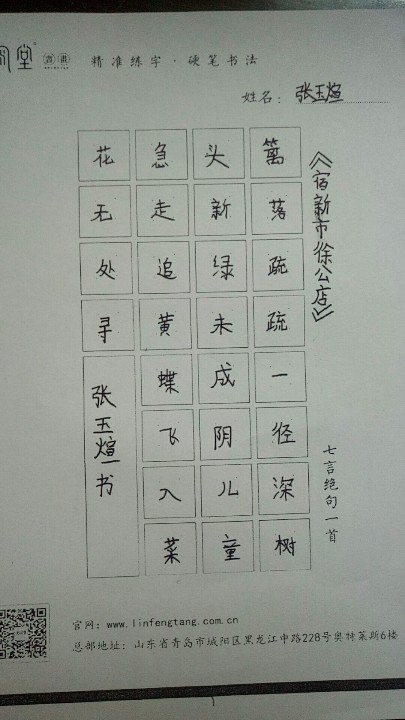 堂
精准练字·硬笔书法
姓名：张玉煊
《宿新市徐公店》
七言绝句一首
篱落疏疏一径深树
头新绿未成阴儿童
急走追黄蝶飞入菜
花无处寻
张玉煊书
官网：www.linfengtang.com
总部地址：山东省青岛市城阳区黑龙江中路228号奥特莱斯6楼